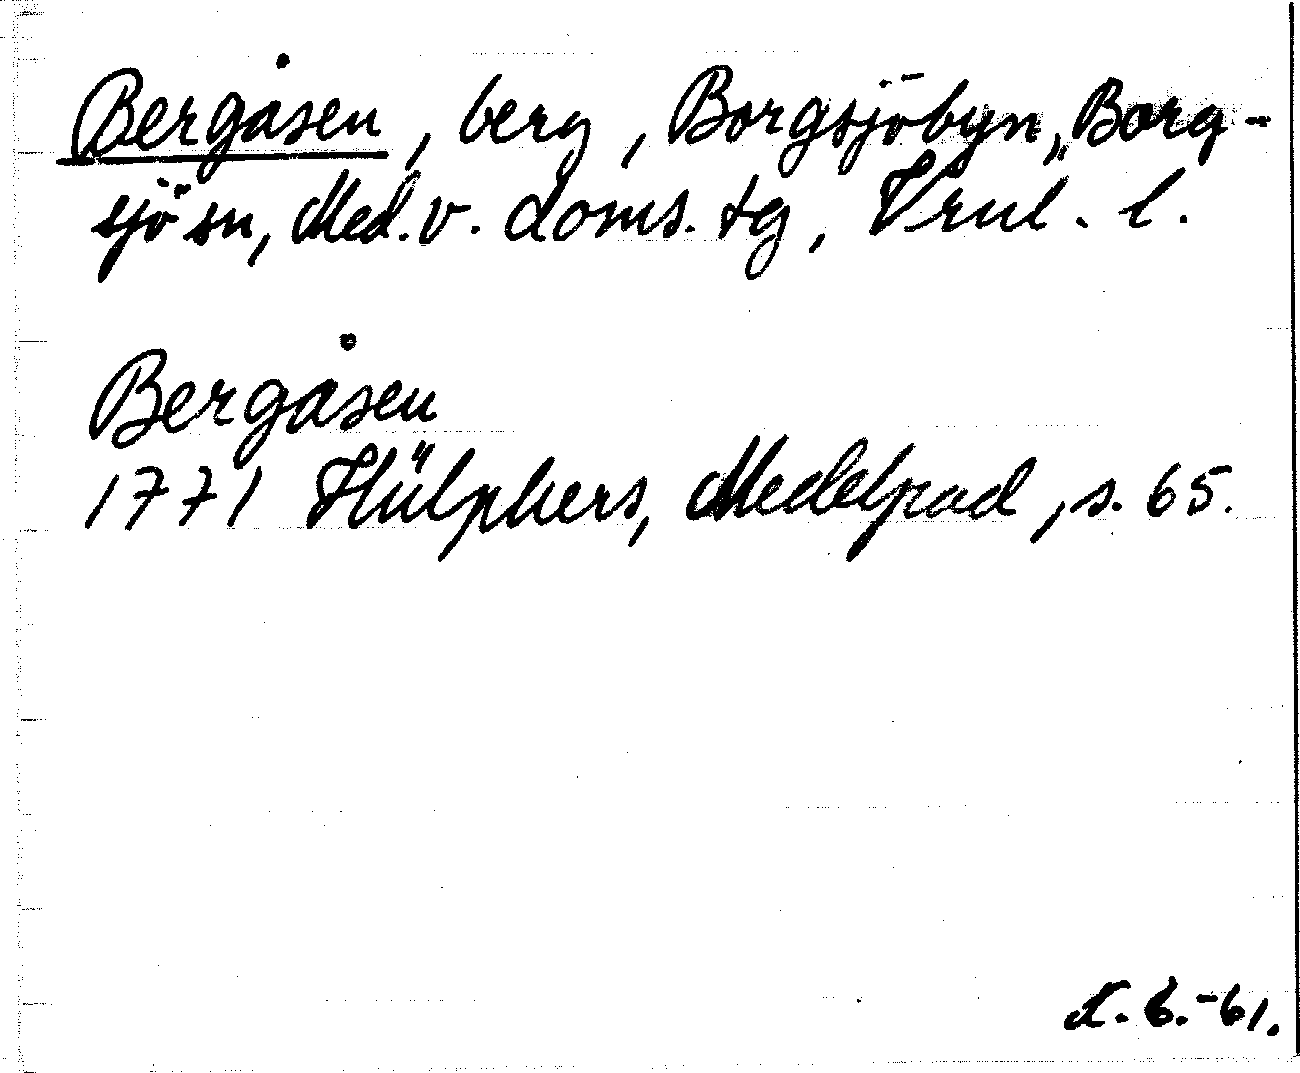 Bergåsen, berg, Borgsjöbyn, Borg-
sjö sn, Med. v. doms. tg, Vrnl. l.
Bergåsen
1771 Hülphers, Medelpad, s. 65.
-61.